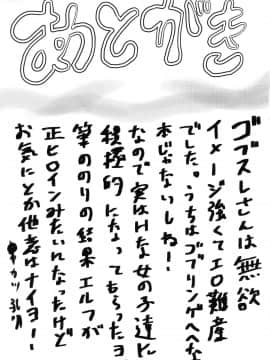 あとがき
ゴブスレさんは無欲
イメージ強くてエロ難産
でした。うちはゴブリンゲヘヘな
本じゃないしねー
なので実はHな女の子達に
積極的になってもらったョ
筆ののりの結果エルフが
正ヒロインみたいんなったけど
お気にとか他意はナイョー!